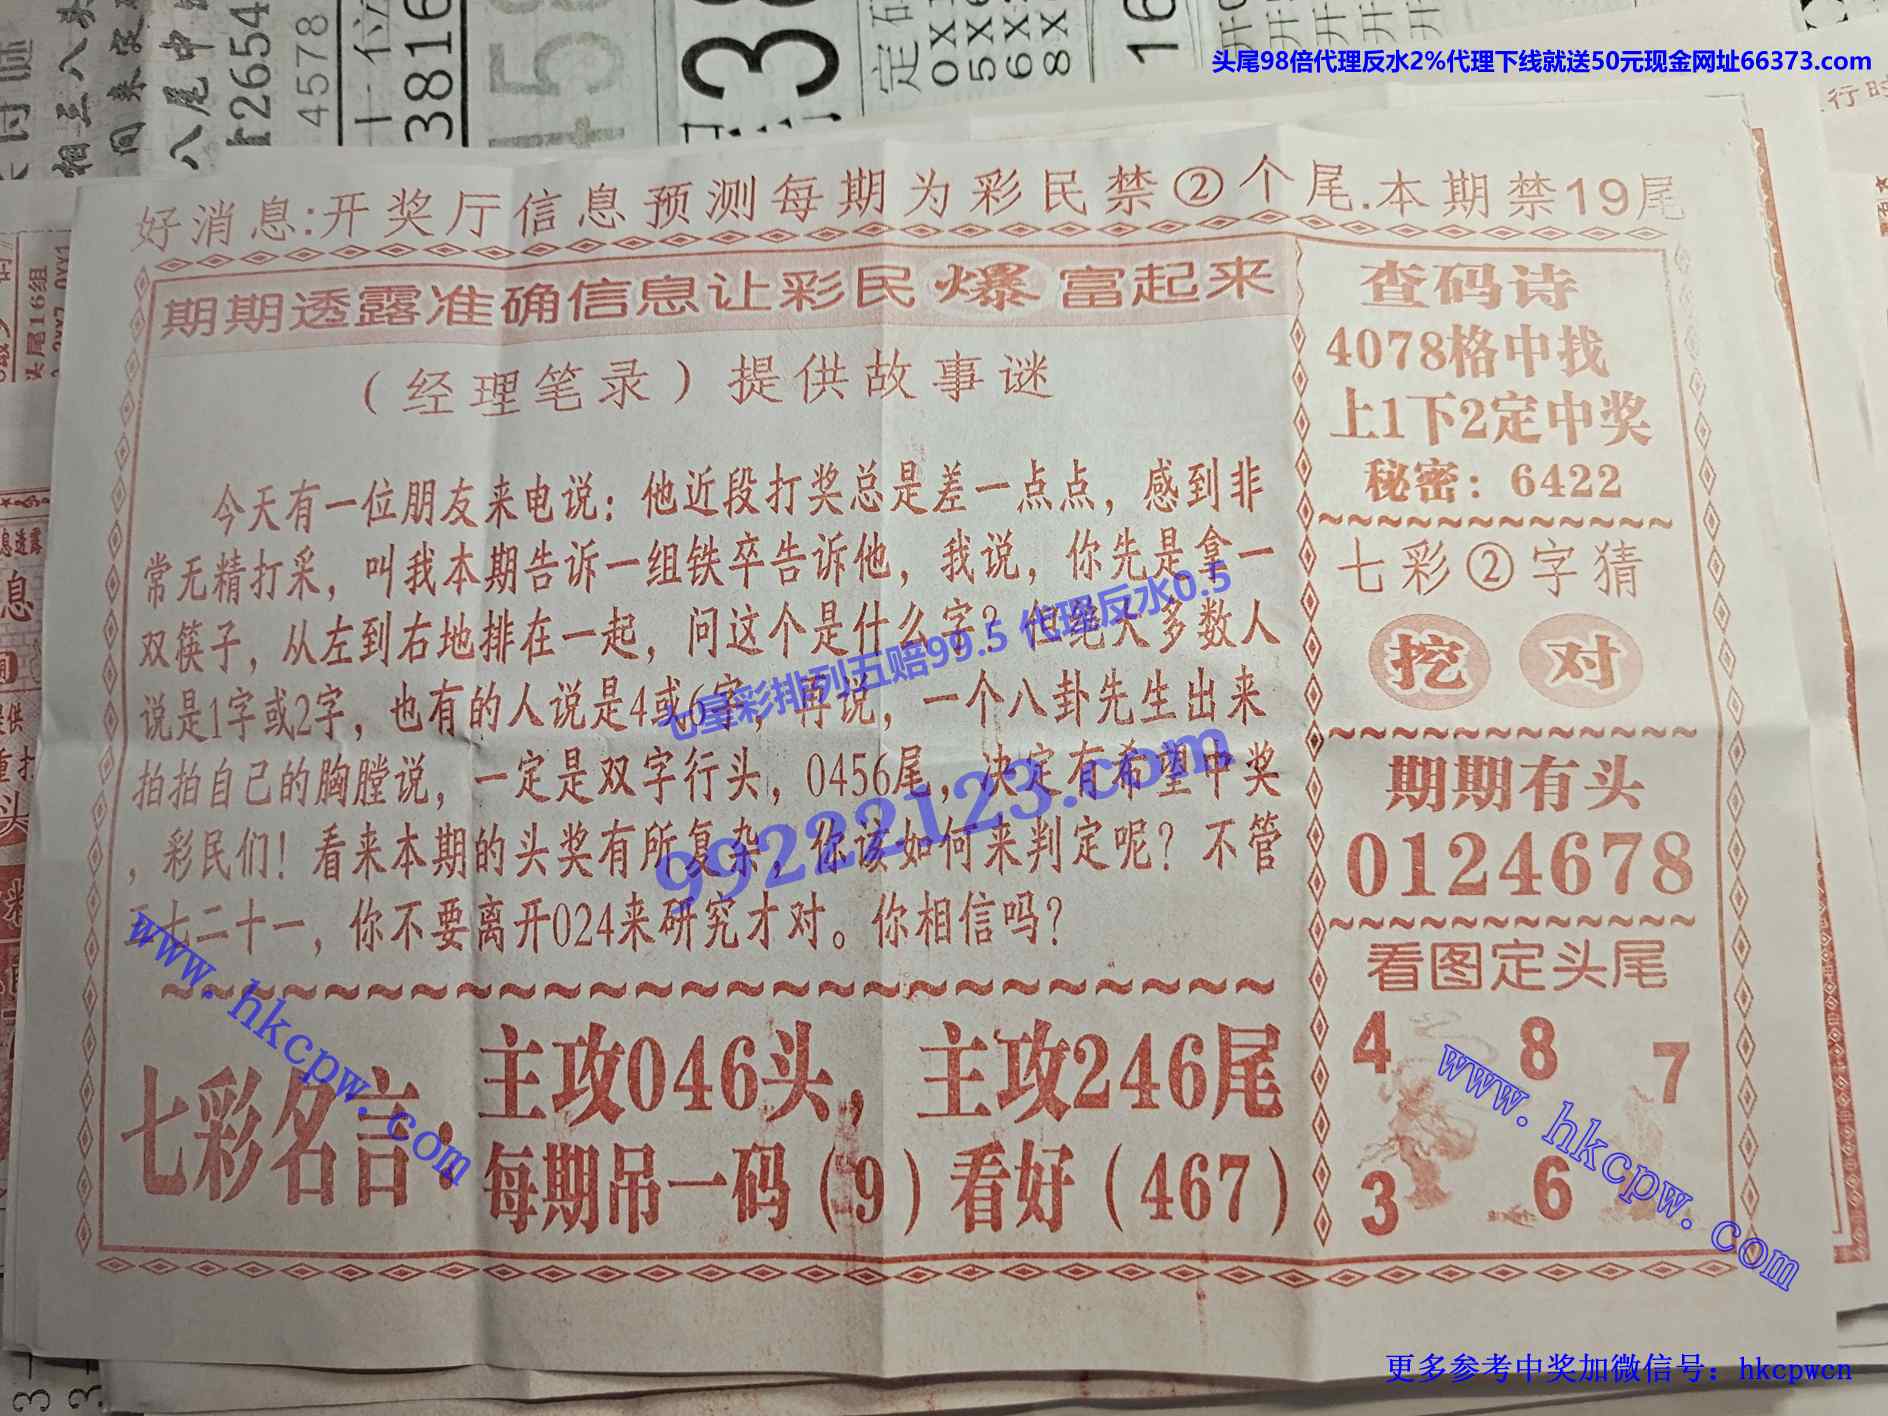 头尾98倍代理反水2%代理下线就送50元现金网址66373.com
好消息:开奖厅信息预测每期为彩民禁②个尾.本期禁19尾
期期透露准确信息让彩民爆富起来
（经理笔录）提供故事谜
今天有一位朋友来电说：他近段打奖总是差一点点，感到非
常无精打采，叫我本期告诉一组铁卒告诉他，我说，你先是拿一
双筷子，从左到右地排在一起，问这个是什么字？但绝大多数人
说是1字或2字，也有的人说是4或6字，再说，一个八卦先生出来
拍拍自己的胸膛说，一定是双字行头，0456尾，决定有希望中奖
，彩民们！看来本期的头奖有所复杂，你该如何来判定呢？不管
七二十一，你不要离开024来研究才对。你相信吗？
七彩名言：
主攻046头，主攻246尾
每期吊一码（9）看好（467）
查码诗
4078格中找
上1下2定中奖
秘密：6422
七彩②字猜
挖 对
期期有头
0124678
看图定头尾
4 8 7
3 6
七星彩排列五赔99.5 代理反水0.5
99222123.com
www.hkcpw.com
www.hkcpw.com
更多参考中奖加微信号：hkcpwcn
38
定码
26544
4578
3816
头尾16组